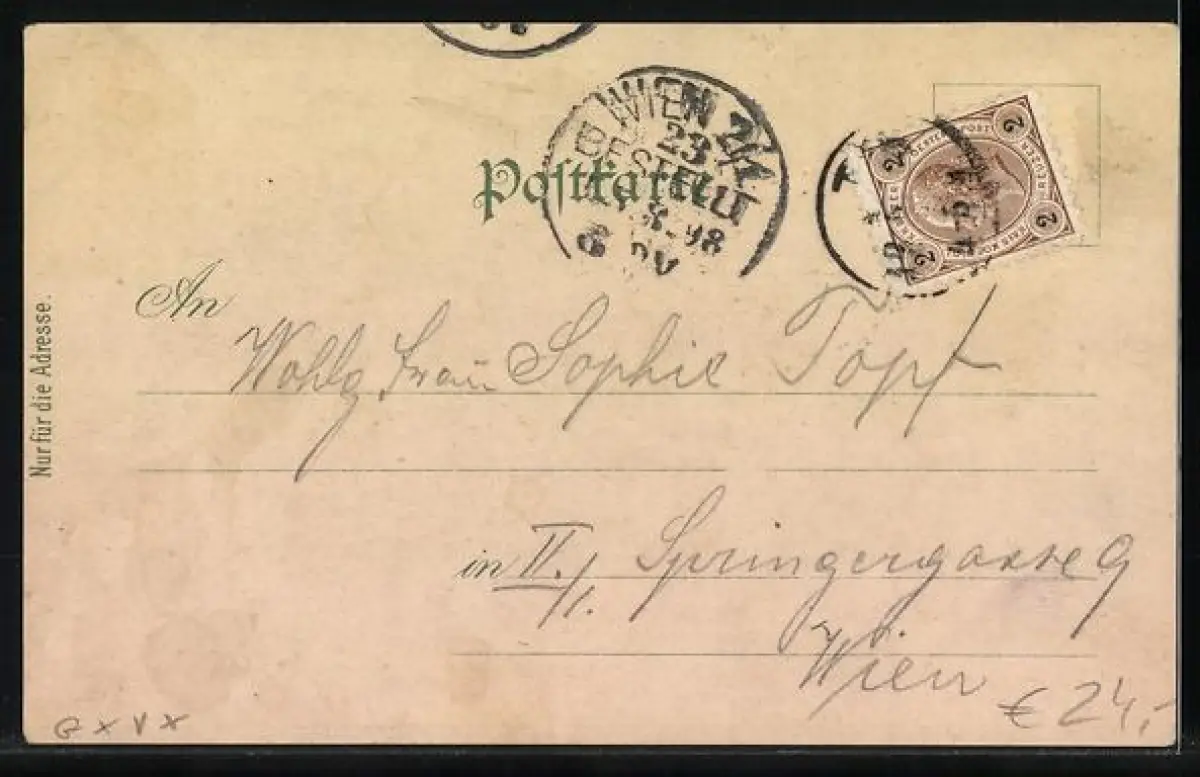 WIEN 2/1
BESTELLT
23
8 98
6
Postkarte
2 2
2 2
An
Wohlg. Frau Sophie Topf
in II./1. Springergasse 9
Wien
Nur für die Adresse.
G x V x
€ 24,-